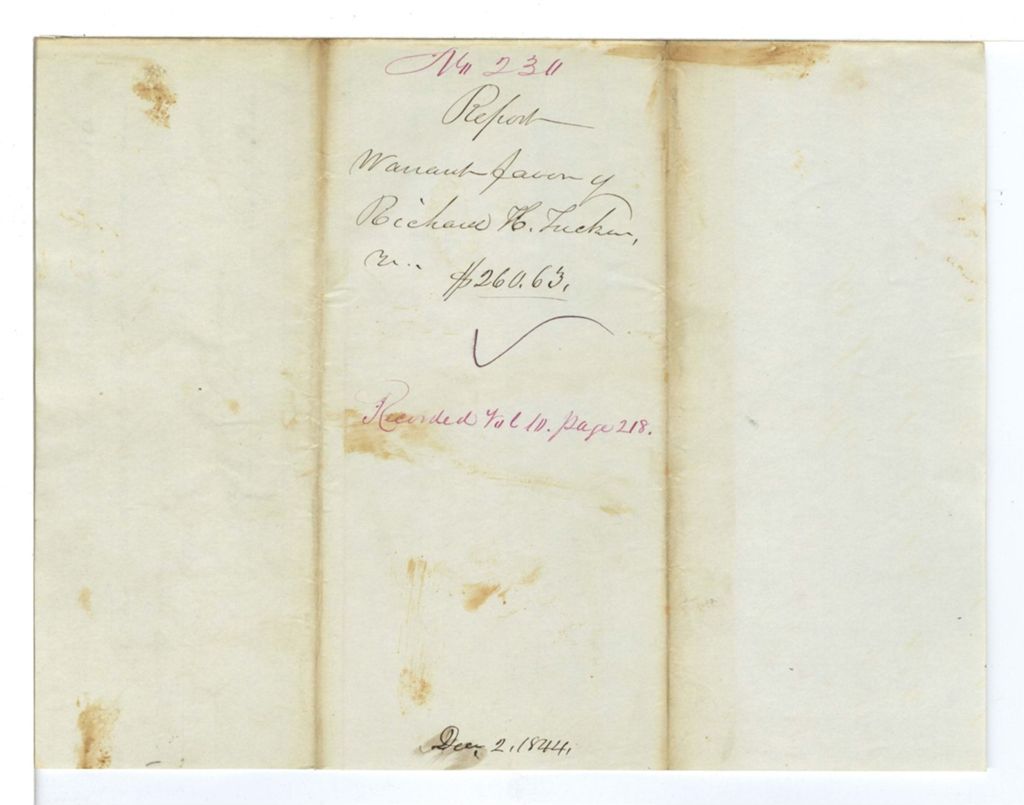 No 230
Report
Warrant favor of
Richard H. Tucker,
$260.63.
Recorded Vol 10. page 218.
Dec. 2. 1844.